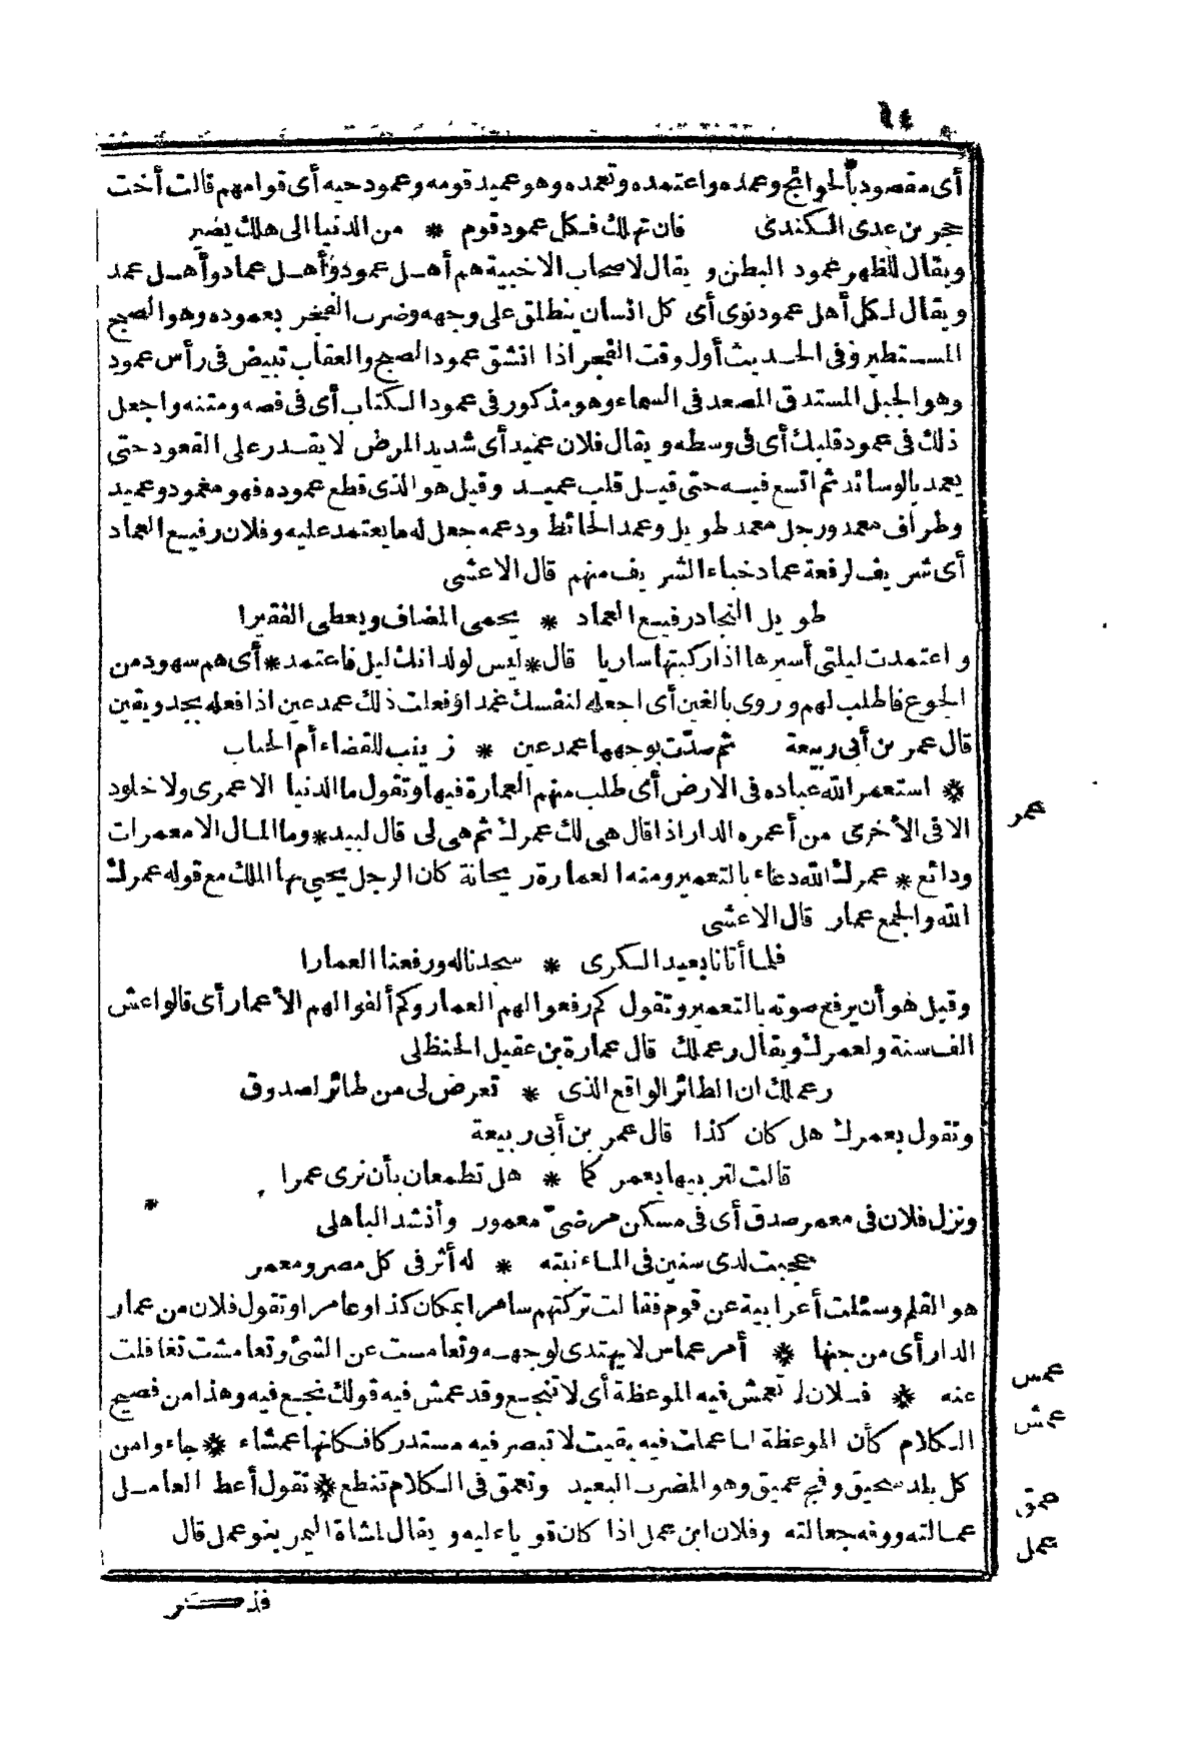 ٦٤
أى مقصود بالحوائج وعمده واعتمده وتعمده وهو عميد قومه وعمود حيه أى قوامهم قالت أخت
حجر بن عدى الكندى فان تهلك فكل عمود قوم * من الدنيا الى هلك يصير
ويقال للظهر عمود البطن ويقال لاصحاب الاخبية هم أهل عمود وأهل عماد وأهل عمد
ويقال لكل أهل عمود نوى أى كل انسان ينطلق على وجهه وضرب الفجر بعموده وهو الصبح
المستطير وفى الحديث أول وقت الفجر اذا انشق عمود الصبح والعقاب تبيض فى رأس عمود
وهو الجبل المستدق المصعد فى السماء وهو مذكور فى عمود الكتاب أى فى فصه ومتنه واجعل
ذلك فى عمود قلبك أى فى وسطه ويقال فلان عميد أى شديد المرض لا يقدر على القعود حتى
يعمد بالوسائد ثم اتسع فيه حتى قيل قلب عميد وقيل هو الذى قطع عموده فهو معمود وعميد
وطراف معمد ورجل معمد طويل وعمد الحائط ودعمه جعل له ما يعتمد عليه وفلان رفيع العماد
أى شريف لرفعة عماد خباء الشريف منهم قال الاعشى
طويل النجاد رفيع العماد * يحمى المضاف ويعطى الفقيرا
واعتمدت ليلتى أسيرها اذا ركبتها ساريا قال * ليس لولدانك ليل فاعتمد * أى هم سهود من
الجوع فاطلب لهم وروى بالغين أى اجعله لنفسك غمدا وفعلت ذلك عمد عين اذا فعله بجد ويقين
قال عمر بن أبى ربيعة ثم صدّت بوجهها عمد عين * زينب للقضاء أم الحباب
عمر
* استعمر الله عباده فى الارض أى طلب منهم العمارة فيها وتقول ما الدنيا الا عمرى ولا خلود
الا فى الأخرى من أعمره الدار اذا قال هى لك عمرك ثم هى لى قال لبيد * وما المال الا معمرات
ودائع * عمرك الله دعاء بالتعمير ومنه العمارة ريحانة كان الرجل يحيى بها الملك مع قوله عمرك
الله والجمع عمار قال الاعشى
فلما أتانا بعيد الكرى * سجدنا له ورفعنا العمارا
وقيل هو أن يرفع صوته بالتعمير وتقول كم رفعوا لهم العمار وكم ألفوا لهم الأعمار أى قالوا عش
الف سنة ولعمرك ويقال رعملك قال عمارة بن عقيل الحنظلى
رعملك ان الطائر الواقع الذى * تعرض لى من طائر لصدوق
وتقول بعمرك هل كان كذا قال عمر بن أبى ربيعة
قالت لتربيها بعمركما * هل تطمعان بأن نرى عمرا
ونزل فلان فى معمر صدق أى فى مسكن مرضىّ معمور وأنشد الباهلى
عجبت لدى سنين فى الماء نبته * له أثر فى كل مصر ومعمر
هو القلم وسئلت أعرابية عن قوم فقالت تركتهم سامرا بمكان كذا وعامرا وتقول فلان من عمار
عمس
الدار أى من جنها * أمر عماس لا يهتدى لوجهه وتعامست عن الشئ وتعامشت تغافلت
عمش
عنه * فلان لا تعمش فيه الموعظة أى لا تنجع وقد عمش فيه قولك نجع فيه وهذا من فصيح
الكلام كأن الموعظة لما عملت فيه بقيت لا تبصر فيه مستدركا فكانها عمشاء * جاءوا من
عمق
كل بلد سحيق وفج عميق وهو المضرب البعيد وتعمق فى الكلام تنطع * تقول أعط العامل
عمل
عمالته ووفه جعالته وفلان ابن عمل اذا كان قويا عليه ويقال لمشاة اليمر بنو عمل قال
فذكر